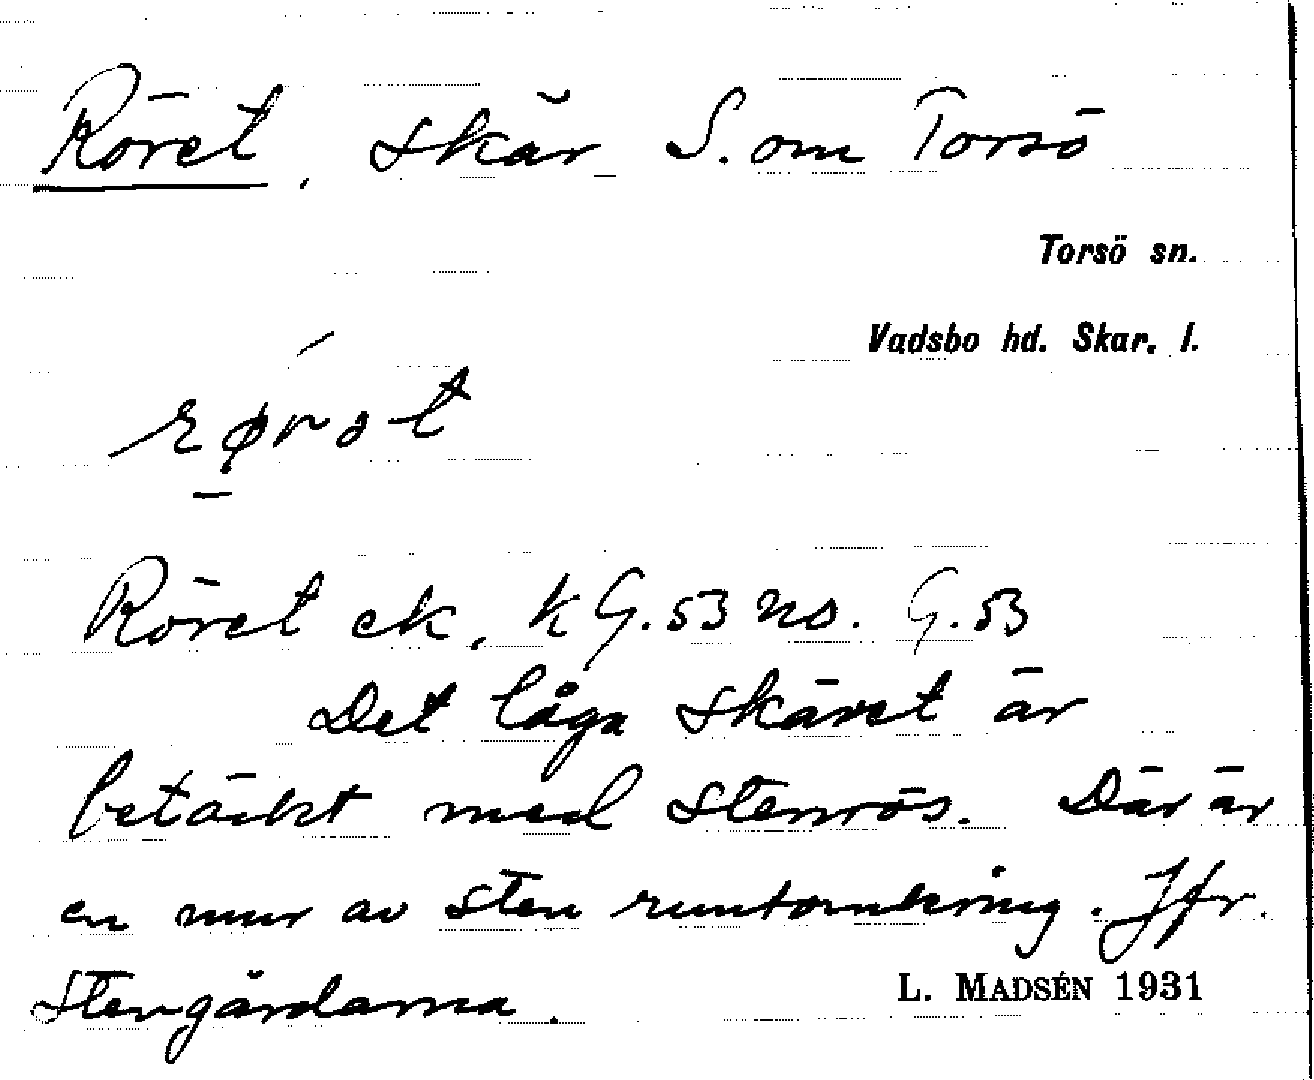 Röret, skär S. om Torsö
Torsö sn.
Vadsbo hd. Skar. l.
Röret ek. k G. 53 no. G. 53
Det låga skäret är
betäckt med stenrös. Där är
en mur av sten runtomkring. Jfr.
Stengärdarna.
L. MADSÉN 1931